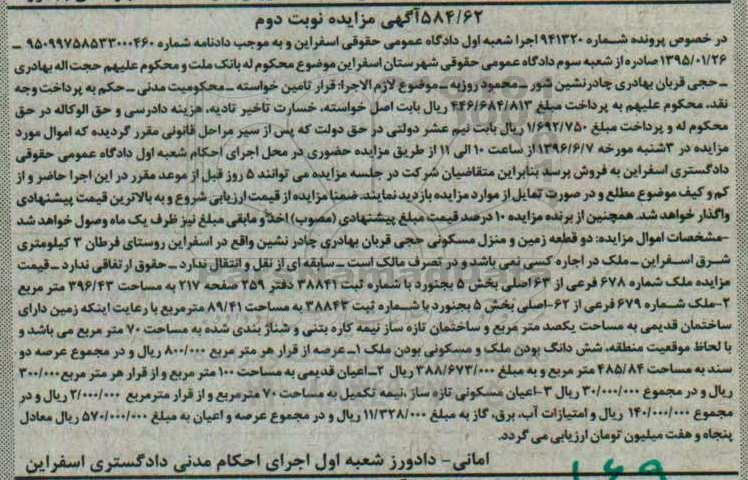 ۵۸۴/۶۲آگهی مزایده نوبت دوم
در خصوص پرونده شماره ۹۴۱۳۲۰ اجرا شعبه اول دادگاه عمومی حقوقی اسفراین و به موجب دادنامه شماره ۹۵۰۹۹۷۵۸۵۳۳۰۰۰۴۶۰ –
۱۳۹۵/۰۱/۲۶ صادره از شعبه سوم دادگاه عمومی حقوقی شهرستان اسفراین موضوع محکوم له بانک ملت و محکوم علیهم حجت اله بهادری
– حجی قربان بهادری چادرنشین قمور – محمود روزبه – موضوع لازم الاجرا: قرار تامین خواسته – محکومیت مدنی – حکم به پرداخت وجه
نقد، محکوم علیهم به پرداخت مبلغ ۴۴۶/۶۸۴/۸۱۳ ریال بابت اصل خواسته، خسارت تاخیر تادیه، هزینه دادرسی و حق الوکاله در حق
محکوم له و پرداخت مبلغ ۱/۶۹۲/۷۵۰ ریال بابت نیم عشر دولتی در حق دولت که پس از سیر مراحل قانونی مقرر گردیده که اموال مورد
مزایده در ۳شنبه مورخه ۱۳۹۶/۶/۷ از ساعت ۱۰ الی ۱۱ از طریق مزایده حضوری در محل اجرای احکام شعبه اول دادگاه عمومی حقوقی
دادگستری اسفراین به فروش برسد بنابراین متقاضیان شرکت در جلسه مزایده می توانند ۵ روز قبل از موعد مقرر در این اجرا حاضر و از
کم و کیف موضوع مطلع و در صورت تمایل از موارد مزایده بازدید نمایند. ضمنا مزایده از قیمت ارزیابی شروع و به بالاترین قیمت پیشنهادی
واگذار خواهد شد. همچنین از برنده مزایده ۱۰ درصد قیمت مبلغ پیشنهادی (مصوب) اخذ و مابقی مبلغ نیز ظرف یک ماه وصول خواهد شد
-مشخصات اموال مزایده: دو قطعه زمین و منزل مسکونی حجی قربان بهادری چادر نشین واقع در اسفراین روستای فرطان ۳ کیلومتری
شرق اسفراین – ملک در اجاره کسی نمی باشد و در تصرف مالک است – سابقه ای از نقل و انتقال ندارد – حقوق ارتفاقی ندارد – قیمت
مزایده ملک شماره ۶۷۸ فرعی از ۶۳ اصلی بخش ۵ بجنورد با شماره ثبت ۳۸۸۴۱ دفتر ۲۵۹ صفحه ۲۱۷ به مساحت ۳۹۶/۴۳ متر مربع
۲-ملک شماره ۶۷۹ فرعی از ۶۲-اصلی بخش ۵ بجنورد با شماره ثبت ۳۸۸۴۳ به مساحت ۸۹/۴۱ مترمربع با رعایت اینکه زمین دارای
ساختمان قدیمی به مساحت یکصد متر مربع و ساختمان تازه ساز نیمه کاره بتنی و شناژ بندی شده به مساحت ۷۰ متر مربع می باشد و
با لحاظ موقعیت منطقه، شش دانگ بودن ملک و مسکونی بودن ملک ۱-عرصه از قرار هر متر مربع ۸۰۰/۰۰۰ ریال و در مجموع عرصه دو
سند به مساحت ۴۸۵/۸۴ متر مربع و به مبلغ ۳۸۸/۶۷۳/۰۰۰ ریال ۲-اعیان قدیمی به مساحت ۱۰۰ متر مربع و از قرار هر متر مربع ۳۰۰/۰۰۰
ریال و در مجموع ۳۰/۰۰۰/۰۰۰ ریال ۳-اعیان مسکونی تازه ساز ،نیمه تکمیل به مساحت ۷۰ مترمربع و از قرار مترمربع ۲/۰۰۰/۰۰۰ ریال و در
مجموع ۱۴۰/۰۰۰/۰۰۰ ریال و امتیازات آب، برق، گاز به مبلغ ۱۱/۳۲۸/۰۰۰ ریال و در مجموع عرصه و اعیان به مبلغ ۵۷۰/۰۰۰/۰۰۰ ریال معادل
پنجاه و هفت میلیون تومان ارزیابی می گردد.
امانی- دادورز شعبه اول اجرای احکام مدنی دادگستری اسفراین